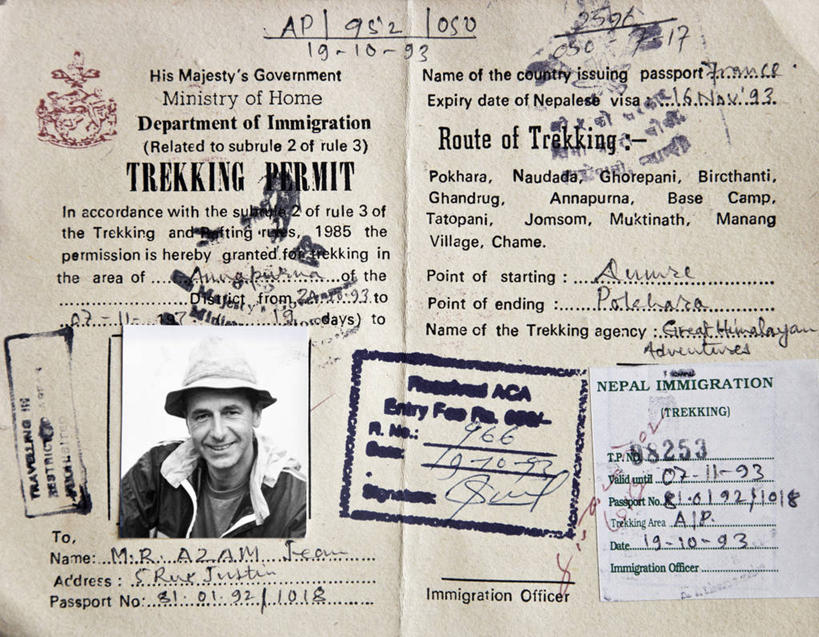 AP/952/050
19-10-93
His Majesty's Government
Ministry of Home
Department of Immigration
(Related to subrule 2 of rule 3)
TREKKING PERMIT
In accordance with the subrule 2 of rule 3 of
the Trekking and Rafting rules, 1985 the
permission is hereby granted for trekking in
the area of Annapurna of the
District from 20.10.93 to
07-11- 19 days) to
TRAVELLING IN
To,
Name: M.R. AZAM Jean
Address : 5 Rue Justin
Passport No: 81.01.92/1018
2596
050 7-17
Name of the country issuing passport France
Expiry date of Nepalese visa : 16 Nov'93
Route of Trekking :-
Pokhara, Naudada, Ghorepani, Bircthanti,
Ghandrug, Annapurna, Base Camp,
Tatopani, Jomsom, Muktinath, Manang
Village, Chame.
Point of starting : Dumre
Point of ending : Pokhara
Name of the Trekking agency : Great Himalayan
Adventures
Received ACA
Entry Fee Rs.
R. No.: 966
Date: 19-10-93
Signature:
Immigration Officer
NEPAL IMMIGRATION
(TREKKING)
T.P. No. 08253
Valid until 07-11-93
Passport No. 81.01 92/1018
Trekking Area A/P.
Date 19-10-93
Immigration Officer